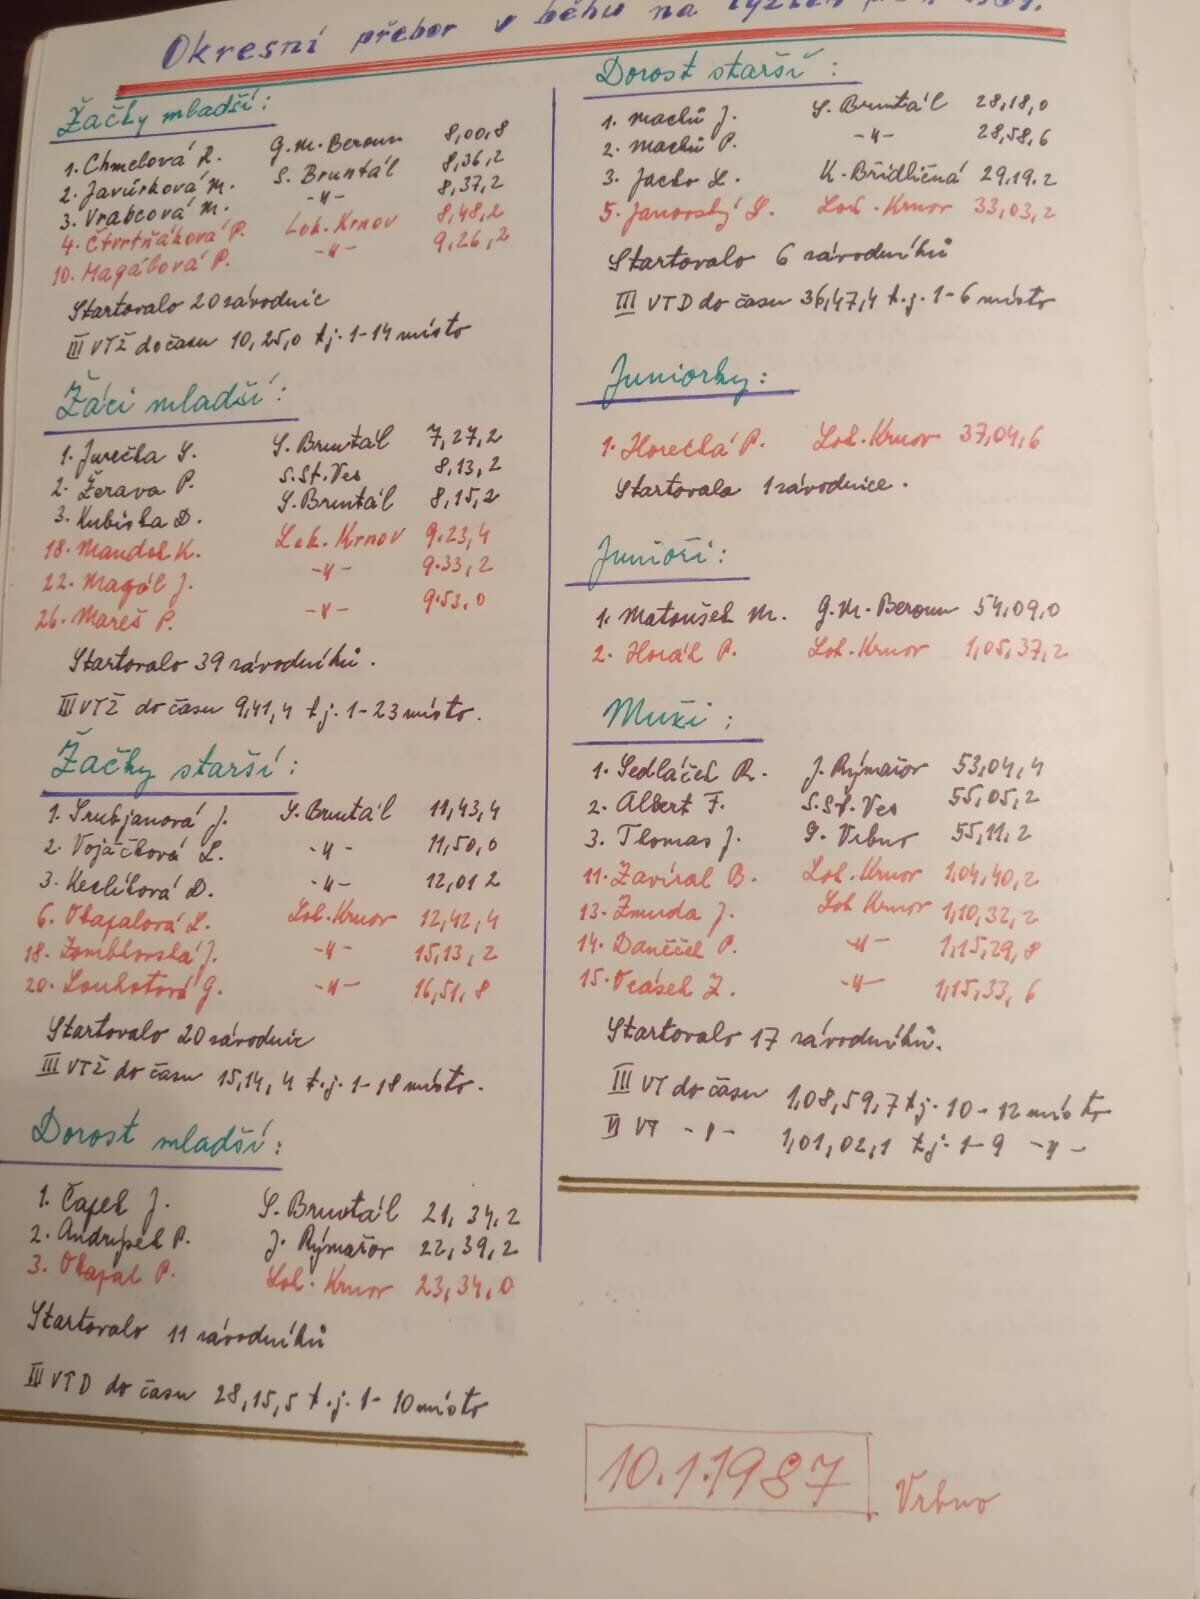 Okresní přebor v běhu na lyžích
Žačky mladší:
1. Chmelová R. G.M. Beroun 8,00,8
2. Javůrková M. S. Bruntál 8,36,2
3. Vrabcová M. -"- 8,37,2
4. Čtvrtňáková P. Lok. Krnov 8,48,2
10. Magálová P. -"- 9,26,2
Startovalo 20 závodnic
III VTŽ do času 10,25,0 t.j. 1-14 místo
Žáci mladší:
1. Jurečka S. S. Bruntál 7,27,2
2. Žerava P. S.St.Ves 8,13,2
3. Kubiska D. S. Bruntál 8,15,2
18. Mandok K. Lok. Krnov 9.23,4
22. Magál J. -"- 9.33,2
26. Mareš P. -"- 9.53,0
Startovalo 39 závodníků.
III VTŽ do času 9,41,4 t.j. 1-23 místo.
Žačky starší:
1. Srubjanová J. S. Bruntál 11,43,4
2. Vojáčková L. -"- 11,50,0
3. Keclíková D. -"- 12,01 2
6. Okapalová L. Lok. Krnov 12,42,4
18. J. -"- 15,13,2
20. Louhotová G. -"- 16,51,8
Startovalo 20 závodnic
III VTŽ do času 15,14,4 t.j. 1-18 místo.
Dorost mladší:
1. Čapek J. S. Bruntál 21,34,2
2. Andrýsek P. J. Rýmařov 22,39,2
3. Okapal P. Lok. Krnov 23,34,0
Startovalo 11 závodníků
III VTD do času 28,15,5 t.j. 1-10 místo
Dorost starší:
1. Machů J. S. Bruntál 28,18,0
2. Machů P. -"- 28,58,6
3. Jacko L. K. Břidličná 29.19.2
5. Janovský S. Lok. Krnov 33,03,2
Startovalo 6 závodníků
III VTD do času 36,47,4 t.j. 1-6 místo
Juniorky:
1. Horečká P. Lok. Krnov 37,04,6
Startovala 1 závodnice.
Junioři:
1. Matoušek M. G.M. Beroun 54,09,0
2. Horák P. Lok. Krnov 1,05,37,2
Muži:
1. Sedláček R. J. Rýmařov 53,04,4
2. Albert F. S.St. Ves 55,05,2
3. Thomas J. G. Vrbno 55,11,2
11. Zavíral B. Lok. Krnov 1,04,40,2
13. Zmuda J. Lok Krnov 1,10,32,2
14. Daněček P. -"- 1,15,29,8
15. Z. -"- 1,15,33,6
Startovalo 17 závodníků.
III VT do času 1,08,59,7 t.j. 10-12 místo
II VT -"- 1,01,02,1 t.j. 1-9 -"-
10.1.1987 Vrbno